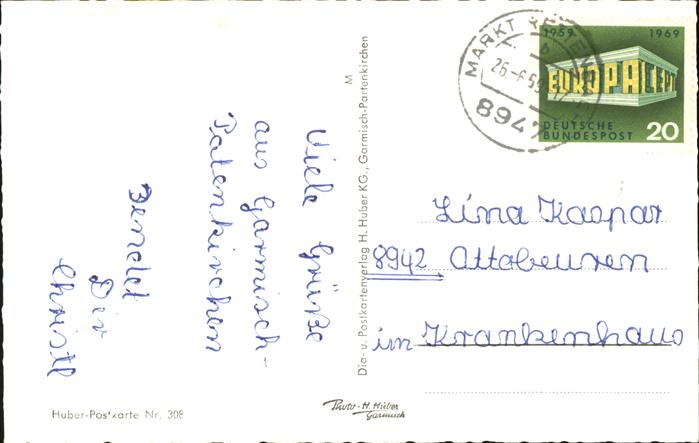 Viele Grüße
aus Garmisch-
Patenkirchen
sendet
Dir
Christl
Huber-Postkarte Nr. 308
M
Dia- u. Postkartenverlag H. Huber KG., Garmisch-Partenkirchen
Photo-H. Huber
Garmisch
MARKT
26.-6.69
894
1959 1969
EUROPA CEPT
DEUTSCHE
BUNDESPOST 20
Lina Kaspar
8942 Ottobeuren
im Krankenhaus